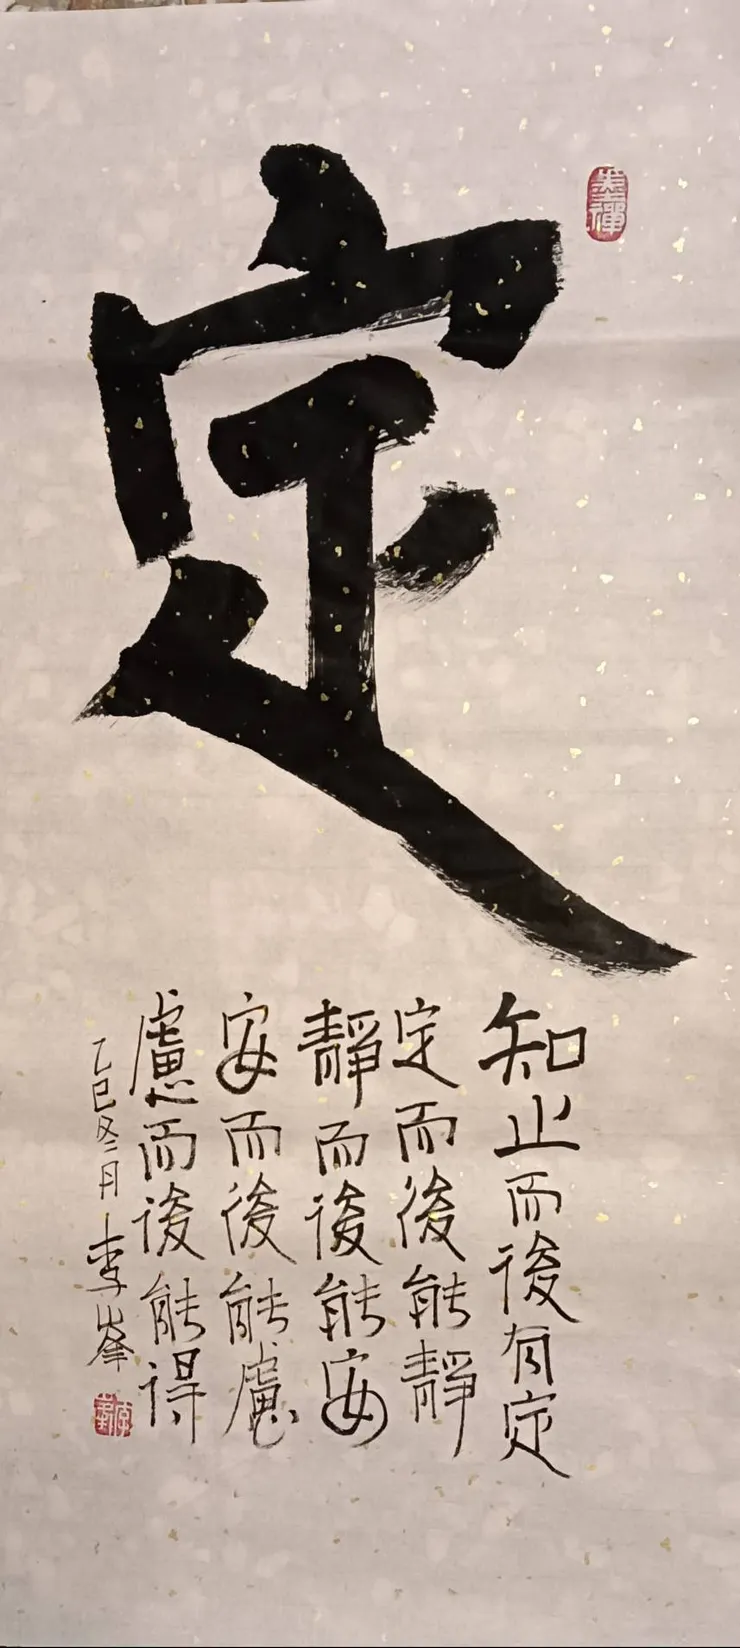 定
知止而後有定
定而後能靜
靜而後能安
安而後能慮
慮而後能得
乙巳冬月
李峯